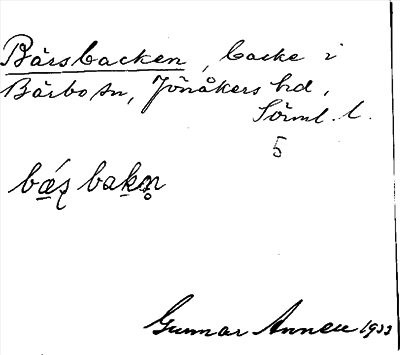 Bärsbacken, backe i
Bärbo sn, Jönåkers hd,
Sörml. l.
5
bá̱ʂ bakn̥
Gunnar Annell 1933